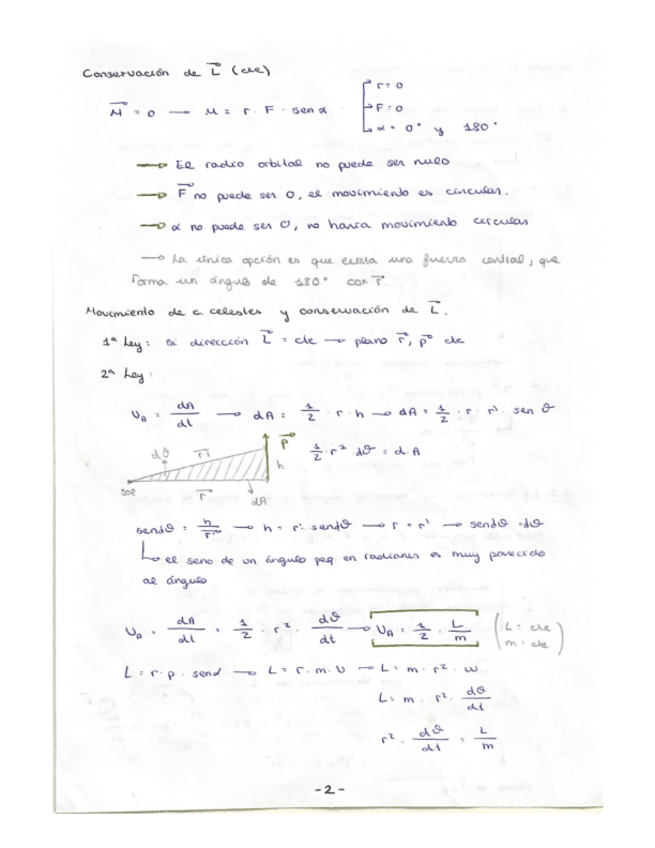 Conservación de L⃗ (cte)
M⃗ = 0 — M = r · F · sen α
r = 0
F = 0
α = 0° y 180°
→ El radio orbital no puede ser nulo
→ F⃗ no puede ser 0, el movimiento es circular.
→ α no puede ser 0, no haría movimiento circular
→ La única opción es que exista una fuerza central, que
forma un ángulo de 180° con r⃗.
Movimiento de c. celestes y conservación de L⃗.
1ª Ley: Si dirección L⃗ = cte → plano r⃗, p⃗ cte
2ª Ley:
U_A = dA/dt → dA = 1/2 · r · h → dA = 1/2 · r · r' · sen θ
1/2 · r² · dθ = dA
dθ r⃗' p⃗ h
sol r⃗ dA
sendθ = h/r' → h = r' · sendθ → r = r' → sendθ = dθ
↳ el seno de un ángulo peq. en radianes es muy parecido
al ángulo
U_A = dA/dt = 1/2 · r² · dθ/dt → U_A = 1/2 · L/m (L = cte
m = cte)
L = r · p · senα → L = r · m · v → L = m · r² · ω
L = m · r² · dθ/dt
r² · dθ/dt = L/m
- 2 -